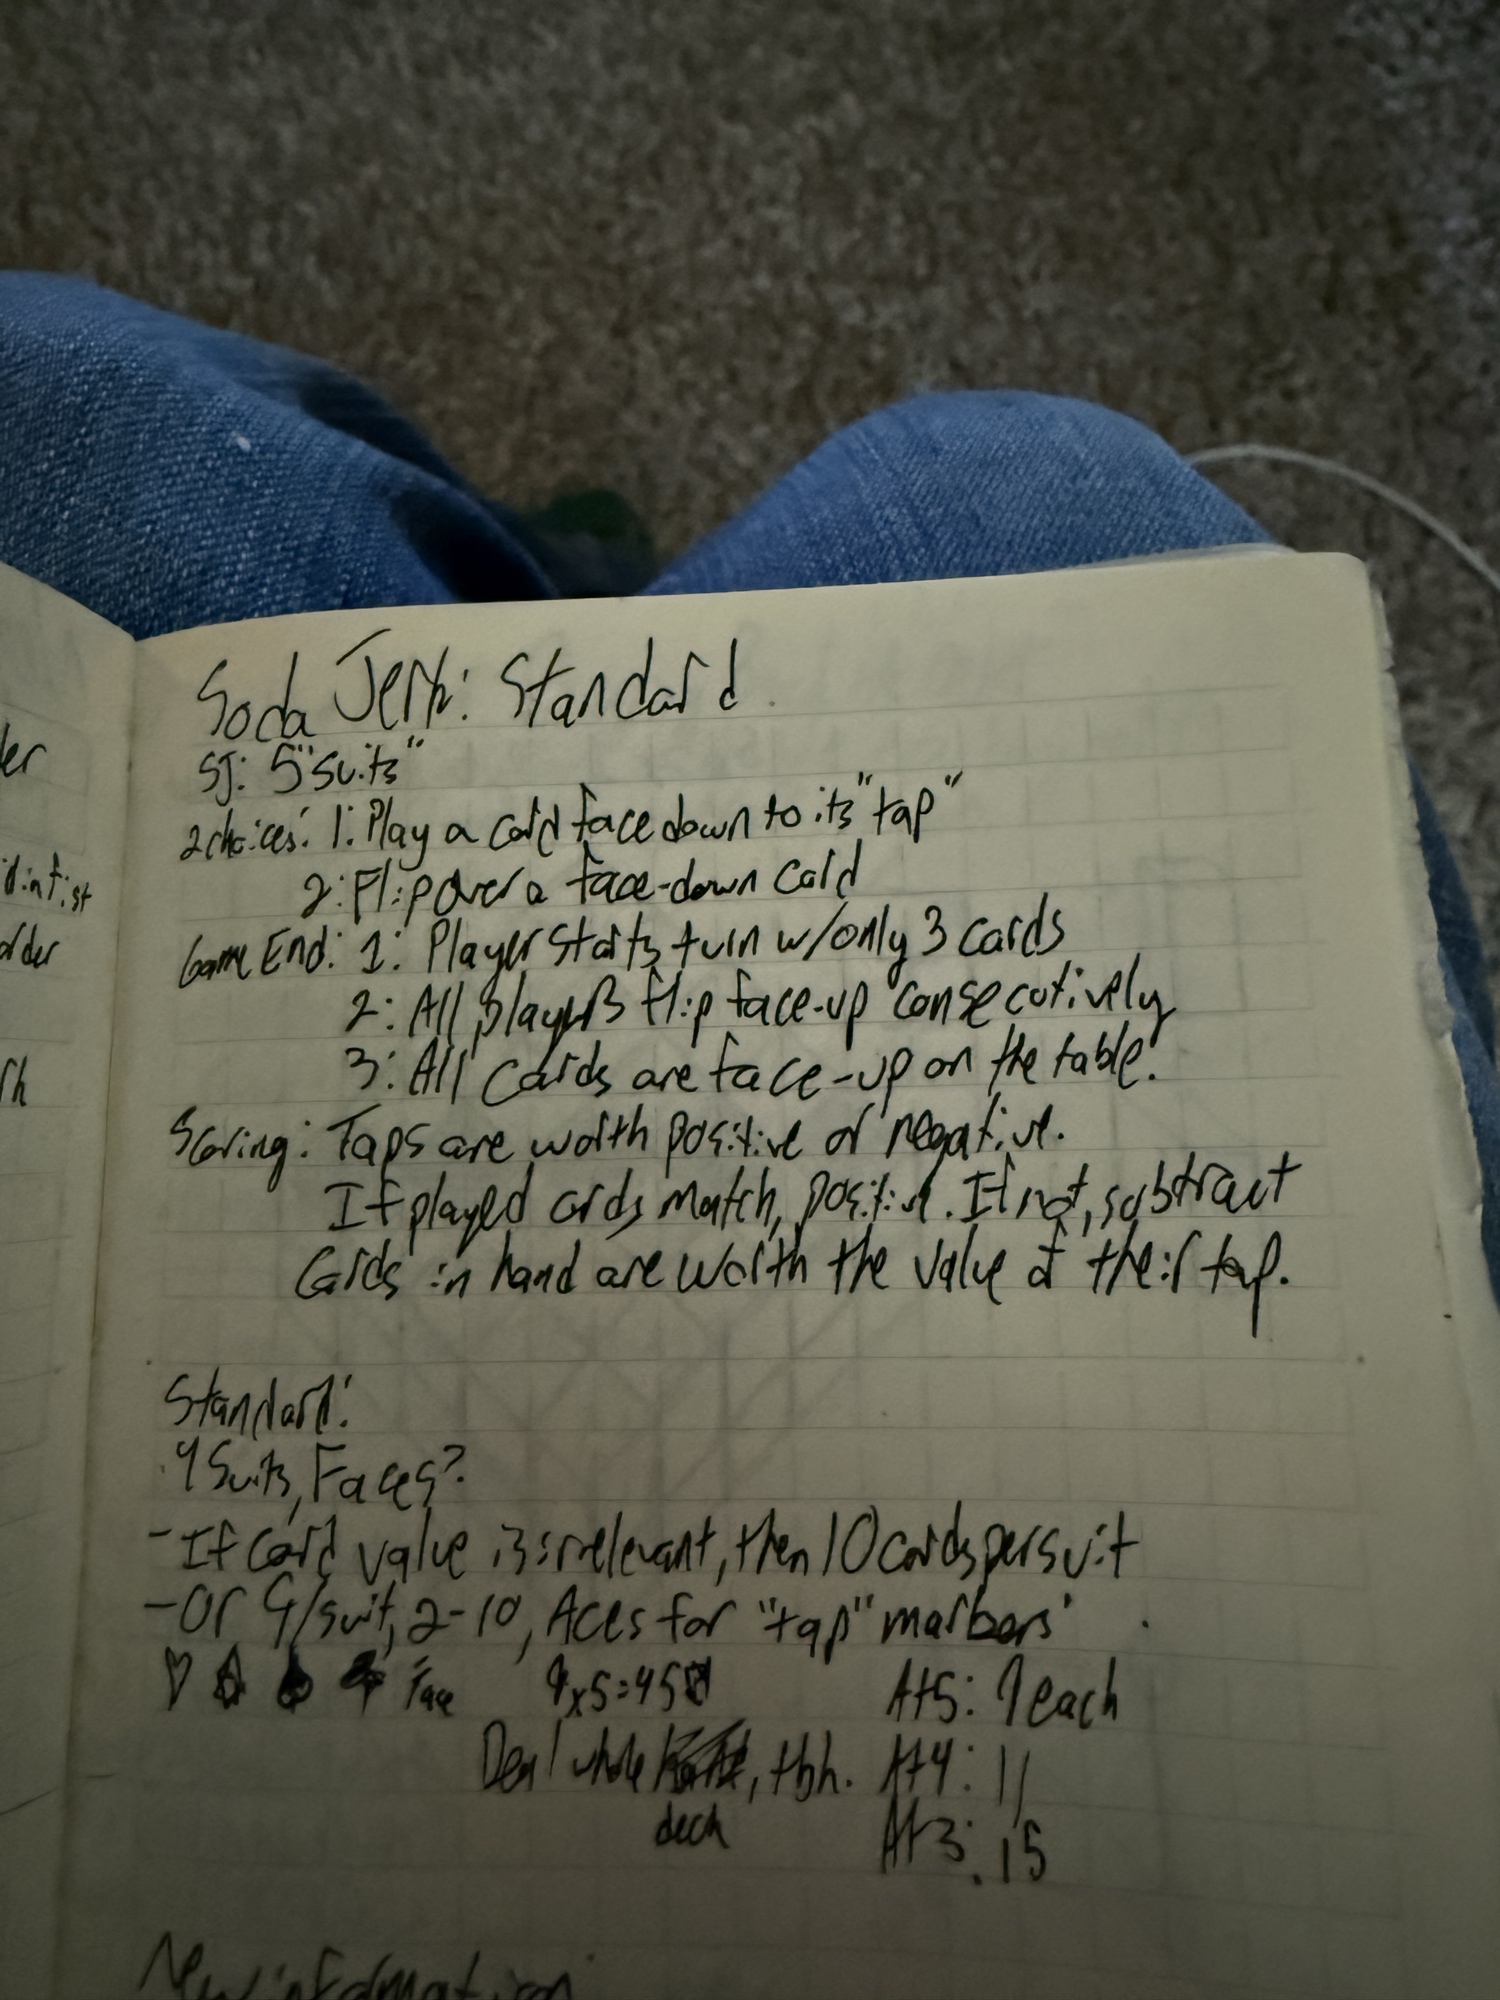 Soda Jerk: Standard
SJ: 5 "suits"
2 choices: 1: Play a card face down to its "tap"
2: Flip over a face-down card
Game End: 1: Player starts turn w/only 3 cards
2: All players flip face-up consecutively
3: All cards are face-up on the table.
Scoring: Taps are worth positive or negative.
If played cards match, positive. If not, subtract
Cards in hand are worth the value of their tap.
Standard:
4 Suits, Faces?
- If card value is irrelevant, then 10 cards per suit
- Or 9/suit, 2-10, Aces for "tap" markers
♡ ♢ ♠ ♣ Face 9x5=45 At 5: 9 each
Deal whole deck, tbh. At 4: 11
At 3: 15
New information
der
order